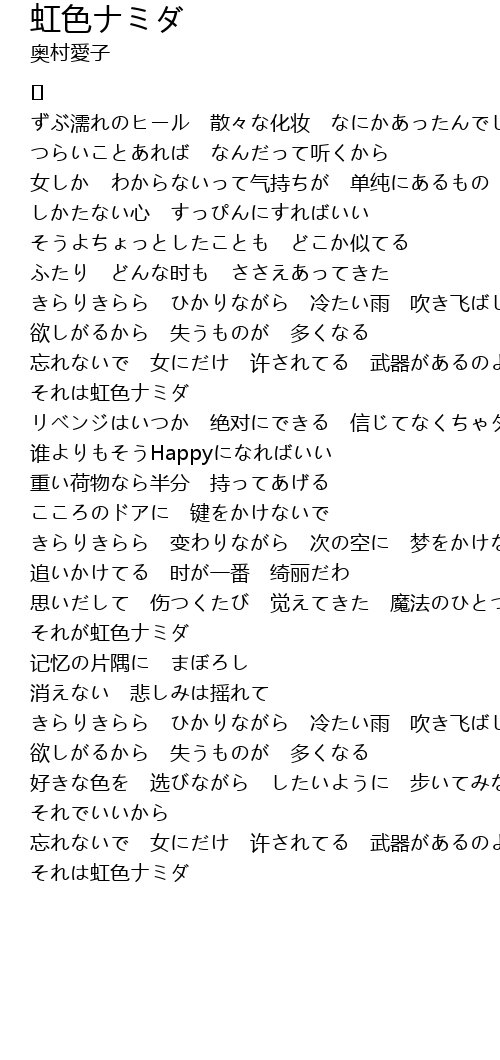 虹色ナミダ
奥村愛子
ずぶ濡れのヒール　散々な化妆　なにかあったんでし
つらいことあれば　なんだって听くから
女しか　わからないって气持ちが　单纯にあるもの
しかたない心　すっぴんにすればいい
そうよちょっとしたことも　どこか似てる
ふたり　どんな时も　ささえあってきた
きらりきらら　ひかりながら　冷たい雨　吹き飛ばし
欲しがるから　失うものが　多くなる
忘れないで　女にだけ　许されてる　武器があるのよ
それは虹色ナミダ
リベンジはいつか　绝对にできる　信じてなくちゃダ
谁よりもそうHappyになればいい
重い荷物なら半分　持ってあげる
こころのドアに　键をかけないで
きらりきらら　变わりながら　次の空に　梦をかけな
追いかけてる　时が一番　绮丽だわ
思いだして　伤つくたび　觉えてきた　魔法のひとつ
それが虹色ナミダ
记忆の片隅に　まぼろし
消えない　悲しみは摇れて
きらりきらら　ひかりながら　冷たい雨　吹き飛ばし
欲しがるから　失うものが　多くなる
好きな色を　选びながら　したいように　步いてみな
それでいいから
忘れないで　女にだけ　许されてる　武器があるのよ
それは虹色ナミダ